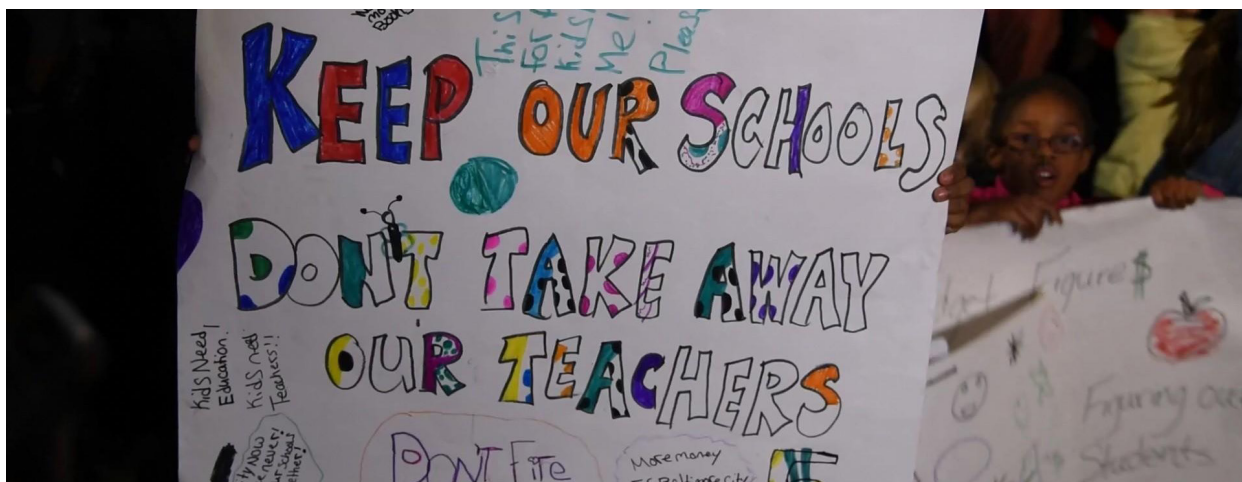 This
For
Kids
Me!
Please
KEEP OUR SCHOOLS
DON'T TAKE AWAY
OUR TEACHERS
Kids Need
Education!
Kids need
Teachers!!
DON'T Fire
More money
Figure$
Figuring
Students